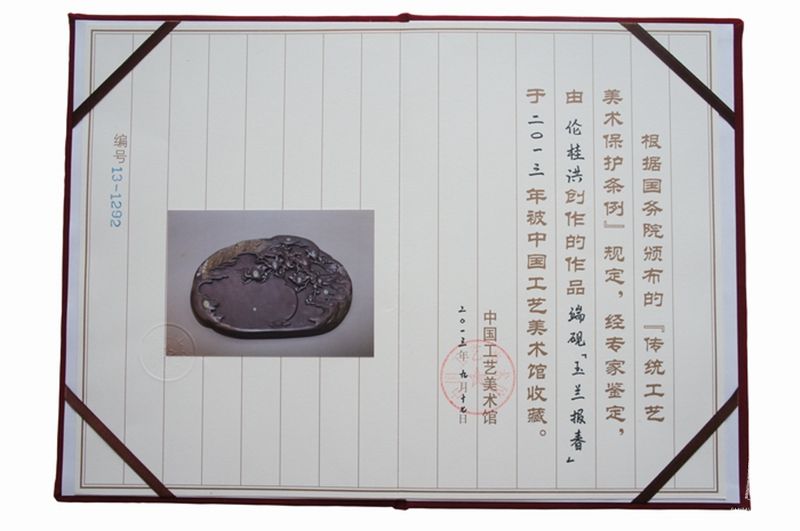 根据国务院颁布的『传统工艺
美术保护条例』规定，经专家鉴定，
由伦桂洪创作的作品端砚「玉兰报春」
于二〇一三年被中国工艺美术馆收藏。
中国工艺美术馆
二〇一三年九月十七日
编号13-1292